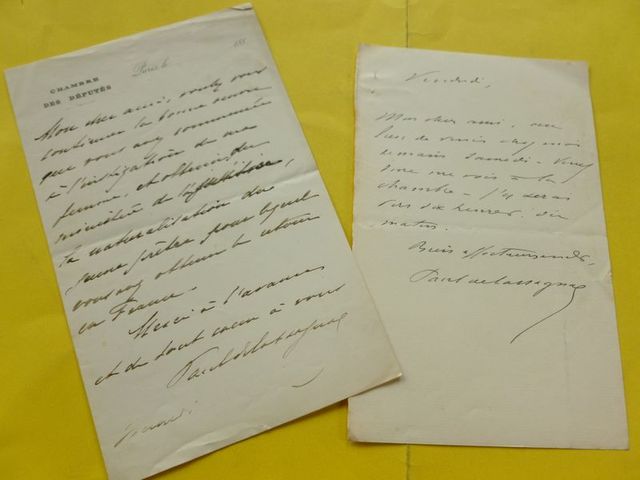 CHAMBRE
DES DÉPUTÉS
Paris le 188
Mon cher ami, voulez vous
continuer la bonne œuvre
que vous avez commencée
à l'instigation de ma
femme, et obtenir du
ministère de l'
la naturalisation du
jeune prêtre pour lequel
vous avez obtenu le retour
en France.
Merci à l'avance
et de tout cœur à vous
Paul de Cassagnac
Vendredi,
Mon cher ami, au
lieu de venir chez moi
demain samedi - venez
donc me voir à la
chambre - j'y serai
vers dix heures du
matin.
Bien affectueusement,
Paul de Cassagnac